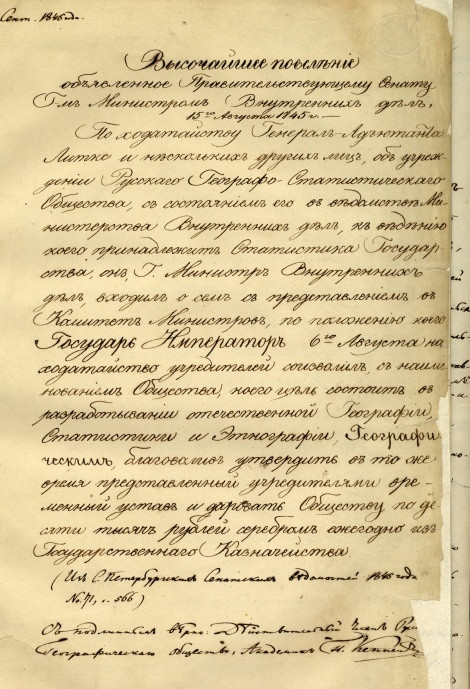 Сент. 1845 года.
Высочайшее повелѣніе
объявленное Правительствующему Сенату
Г-мъ Министромъ Внутреннихъ дѣлъ,
15го Августа 1845 г.
По ходатайству Генералъ-Адъютанта
Литке и нѣсколькихъ другихъ лицъ, объ учреж-
деніи Русскаго Географо-Статистическаго
Общества, съ состояніемъ его въ вѣдомствѣ Ми-
нистерства Внутреннихъ дѣлъ, къ вѣдѣнію
коего принадлежитъ Статистика Государ-
ства, онъ Г. Министръ Внутреннихъ
дѣлъ, входилъ о семъ съ представленіемъ въ
Комитетъ Министровъ, по положенію коего
Государь Императоръ 6го Августа на
ходатайство учредителей соизволилъ, съ наиме-
нованіемъ Общества, коего цѣль состоитъ въ
разработываніи отечественной Географіи,
Статистики и Этнографіи, Географи-
ческимъ, благоволивъ утвердить въ то же
время представленный учредителями вре-
менный уставъ и даровать Обществу по де-
сяти тысячъ рублей серебромъ ежегодно изъ
Государственнаго Казначейства.
(Изъ С. Петербургскихъ Сенатскихъ вѣдомостей 1845 года
No. 71, с. 566)
Съ подлиннымъ вѣрно: Дѣйствительный Членъ Рус.
Географическаго общества, Академикъ П. Кеппенъ